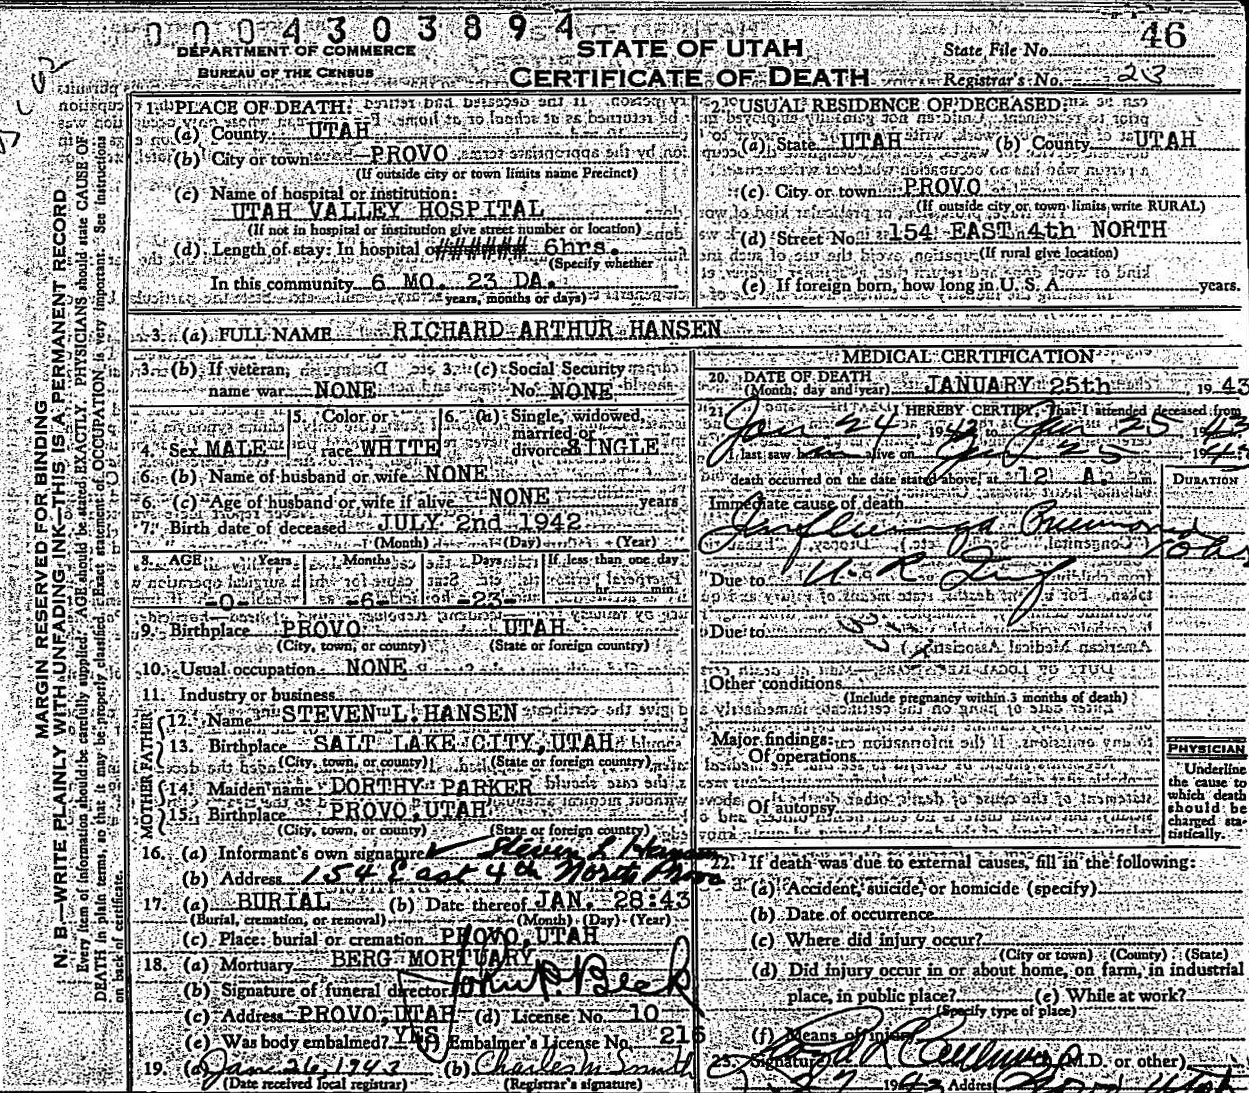 0004303894
DEPARTMENT OF COMMERCE
BUREAU OF THE CENSUS
STATE OF UTAH
CERTIFICATE OF DEATH
State File No. 46
Registrar's No. 23
MARGIN RESERVED FOR BINDING
N. B.—WRITE PLAINLY WITH UNFADING INK—THIS IS A PERMANENT RECORD
Every item of information should be carefully supplied. AGE should be stated EXACTLY. PHYSICIANS should state CAUSE OF
DEATH in plain terms, so that it may be properly classified. Exact statement of OCCUPATION is very important. See instructions
on back of certificate.
1. PLACE OF DEATH:
(a) County UTAH
(b) City or town PROVO
(If outside city or town limits name Precinct)
(c) Name of hospital or institution:
UTAH VALLEY HOSPITAL
(If not in hospital or institution give street number or location)
(d) Length of stay: In hospital or ###### 6hrs.
(Specify whether
In this community 6 MO. 23 DA.
years, months or days)
USUAL RESIDENCE OF DECEASED
(a) State UTAH (b) County UTAH
(c) City or town PROVO
(If outside city or town limits write RURAL)
(d) Street No. 154 EAST 4th NORTH
(If rural give location)
(e) If foreign born, how long in U. S. A. years.
3. (a) FULL NAME RICHARD ARTHUR HANSEN
3. (b) If veteran, name war NONE
3. (c) Social Security No. NONE
4. Sex MALE
5. Color or race WHITE
6. (a) Single, widowed, married or divorced SINGLE
6. (b) Name of husband or wife NONE
6. (c) Age of husband or wife if alive NONE years
7. Birth date of deceased JULY 2nd 1942
(Month) (Day) (Year)
8. AGE Years Months Days If less than one day
-0- -6- -23- hr. min.
9. Birthplace PROVO UTAH
(City, town, or county) (State or foreign country)
10. Usual occupation NONE
11. Industry or business
FATHER
12. Name STEVEN L. HANSEN
13. Birthplace SALT LAKE CITY, UTAH
(City, town, or county) (State or foreign country)
MOTHER
14. Maiden name DORTHY PARKER
15. Birthplace PROVO, UTAH
(City, town, or county) (State or foreign country)
16. (a) Informant's own signature Steven L Hansen
(b) Address 154 East 4th North Provo
17. (a) BURIAL (b) Date thereof JAN. 28:43
(Burial, cremation, or removal) (Month) (Day) (Year)
(c) Place: burial or cremation PROVO, UTAH
18. (a) Mortuary BERG MORTUARY
(b) Signature of funeral director
(c) Address PROVO, UTAH (d) License No. 10
(e) Was body embalmed? YES Embalmer's License No. 216
19. (a) Jan 26, 1943 (b) Charles M Smith
(Date received local registrar) (Registrar's signature)
MEDICAL CERTIFICATION
20. DATE OF DEATH
(Month, day and year) JANUARY 25th, 1943
21. I HEREBY CERTIFY, That I attended deceased from
Jan 24, 1943 to Jan 25 1943
I last saw h alive on Jan 25 194
death occurred on the date stated above, at 12 A. m.
DURATION
Immediate cause of death
Pneumonia
Due to U. R. Inf
Due to
Other conditions
(Include pregnancy within 3 months of death)
Major findings:
Of operations
Of autopsy
PHYSICIAN
Underline
the cause to
which death
should be
charged sta-
tistically.
22. If death was due to external causes, fill in the following:
(a) Accident, suicide, or homicide (specify)
(b) Date of occurrence
(c) Where did injury occur?
(City or town) (County) (State)
(d) Did injury occur in or about home, on farm, in industrial
place, in public place? (e) While at work?
(Specify type of place)
(f) Means of injury
23. Signature (M.D. or other)
27 1943 Address Provo Utah